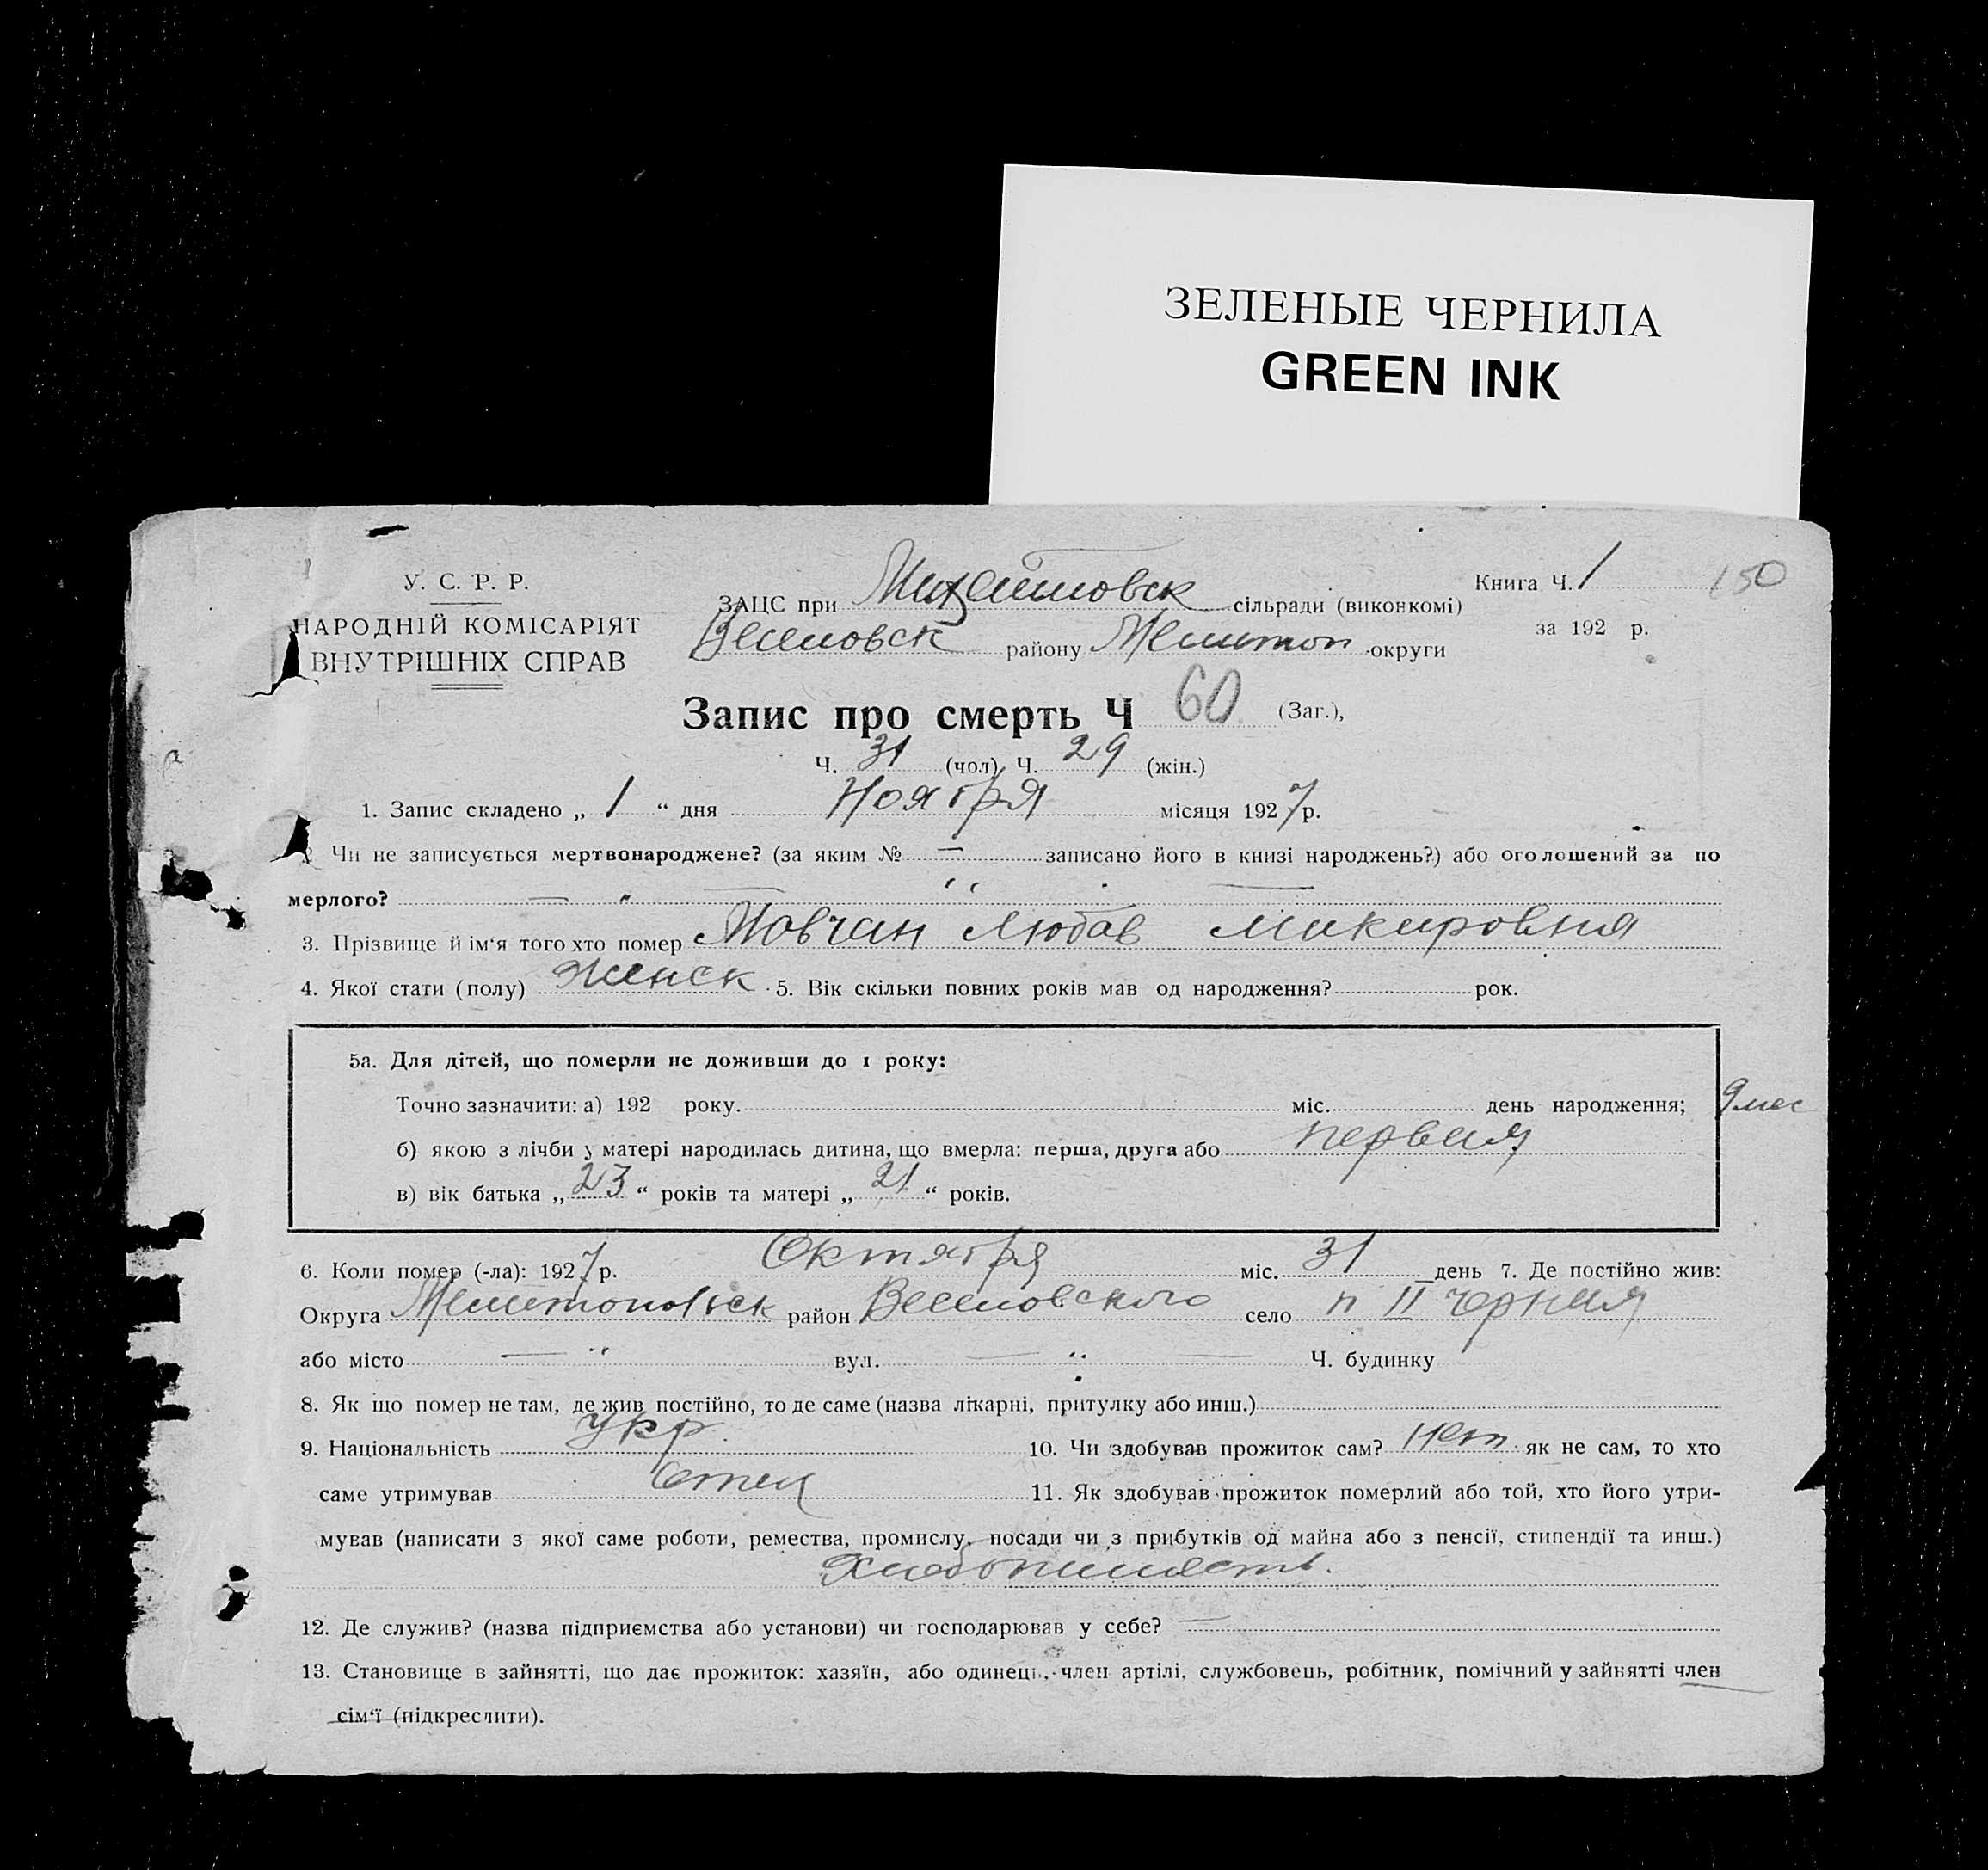 ЗЕЛЕНЫЕ ЧЕРНИЛА
GREEN INK
У. С. Р. Р.
НАРОДНІЙ КОМІСАРІЯТ
ВНУТРІШНІХ СПРАВ
ЗАЦС при Михайловск сільради (виконкомі)
Веселовск району Мелитоп округи
Книга Ч. 1 150
за 192 р.
Запис про смерть Ч 60 (Заг.),
Ч. 31 (чол) Ч. 29 (жін.)
1. Запис складено „ 1 “ дня Ноября місяця 1927 р.
2. Чи не записується мертвонароджене? (за яким № — записано його в книзі народжень?) або оголошений за по
мерлого? — „ — „ —
3. Прізвище й ім‘я того хто помер Мовчан Любов
4. Якої стати (полу) женск 5. Вік скільки повних років мав од народження? рок.
5а. Для дітей, що померли не доживши до 1 року:
Точно зазначити: а) 192 року. міс. день народження; 9 мес
б) якою з лічби у матері народилась дитина, що вмерла: перша, друга або первая
в) вік батька „ 23 “ років та матері „ 21 “ років.
6. Коли помер (-ла): 1927 р. Октября міс. 31 день 7. Де постійно жив:
Округа Мелитопольск район Веселовского село п II
або місто — „ вул. — „ — Ч. будинку
8. Як що помер не там, де жив постійно, то де саме (назва лікарні, притулку або инш.)
9. Національність укр. 10. Чи здобував прожиток сам? нет як не сам, то хто
саме утримував Отец 11. Як здобував прожиток померлий або той, хто його утри-
мував (написати з якої саме роботи, ремества, промислу, посади чи з прибутків од майна або з пенсії, стипендії та инш.)
Хлебопашеств.
12. Де служив? (назва підприємства або установи) чи господарював у себе? —
13. Становище в зайнятті, що дає прожиток: хазяїн, або одинець, член артілі, службовець, робітник, помічний у зайнятті член
сім‘ї (підкреслити).